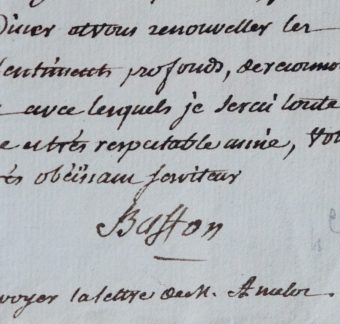 Diner et vous renouveller les
sentiments profonds, de reconno
avec lesquels je serai toute
et très respectable amie, vo
rès obéissant serviteur
Buffon
voyer la lettre de M. Amelot.